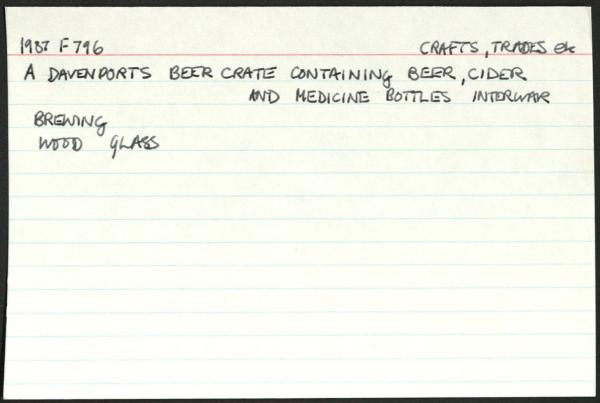 1987 F796 CRAFTS, TRADES etc
A DAVENPORTS BEER CRATE CONTAINING BEER, CIDER
AND MEDICINE BOTTLES INTERWAR
BREWING
WOOD GLASS